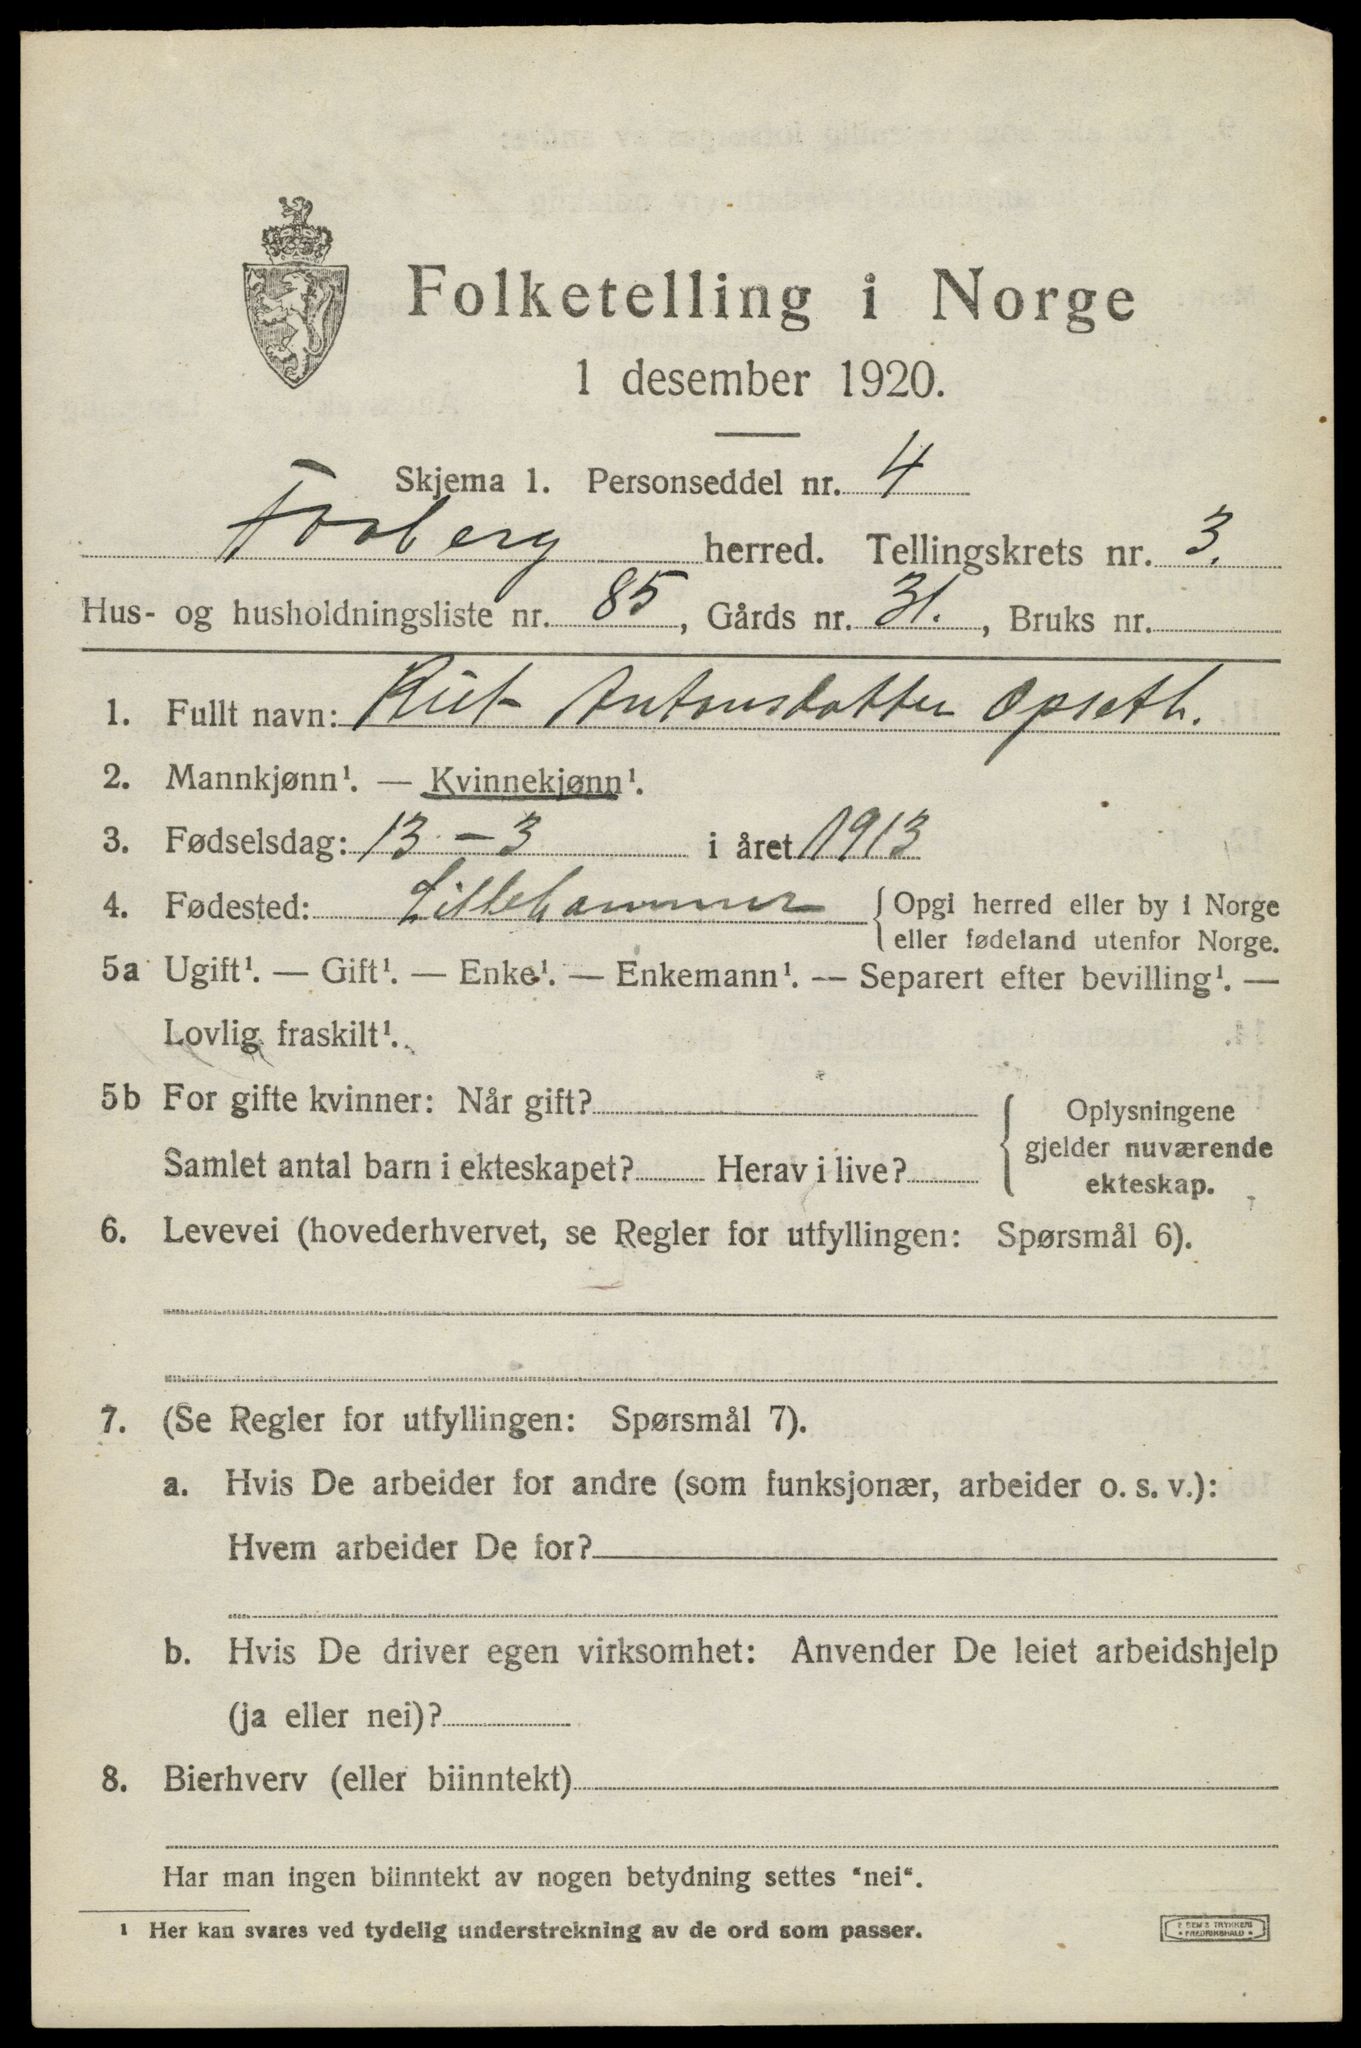 Folketelling i Norge
1 desember 1920.
Skjema 1. Personseddel nr. 4
Faaberg herred. Tellingskrets nr. 3.
Hus- og husholdningsliste nr. 85, Gårds nr. 31., Bruks nr.
1. Fullt navn: Rut Antonsdatter Opseth.
2. Mannkjønn¹. — Kvinnekjønn¹.
3. Fødselsdag: 13 - 3 i året 1913
4. Fødested: Lillehammer { Opgi herred eller by i Norge
eller fødeland utenfor Norge.
5a Ugift¹. — Gift¹. — Enke¹. — Enkemann¹. — Separert efter bevilling¹. —
Lovlig fraskilt¹.
5b For gifte kvinner: Når gift? { Oplysningene
gjelder nuværende
Samlet antal barn i ekteskapet? Herav i live?
ekteskap.
6. Levevei (hovederhvervet, se Regler for utfyllingen: Spørsmål 6).
7. (Se Regler for utfyllingen: Spørsmål 7).
a. Hvis De arbeider for andre (som funksjonær, arbeider o. s. v.):
Hvem arbeider De for?
b. Hvis De driver egen virksomhet: Anvender De leiet arbeidshjelp
(ja eller nei)?
8. Bierhverv (eller biinntekt)
Har man ingen biinntekt av nogen betydning settes "nei".
¹ Her kan svares ved tydelig understrekning av de ord som passer.
TRYKKERI
FREDRIKSHALD